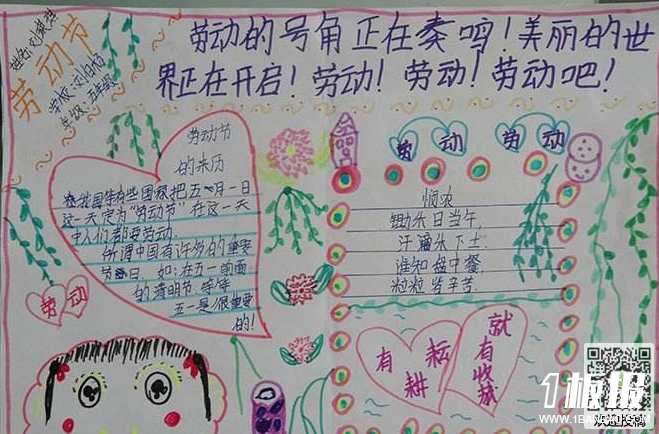 劳动节
年级:五年级
劳动的号角正在奏鸣!美丽的世
界正在开启!劳动!劳动!劳动吧!
劳动节
的来历
在我国年有些国家把五一月一日
这一天定为"劳动节"在这一天
中人们都要劳动.
所谓中国有许多的重要
节日.如:在五一前面
的清明节等等
五一是很重要
的!
劳动
劳动
劳动
悯农
锄禾日当午.
汗滴禾下土.
谁知盘中餐.
粒粒皆辛苦.
有耕耘
就有收获
1板报
欢迎投稿